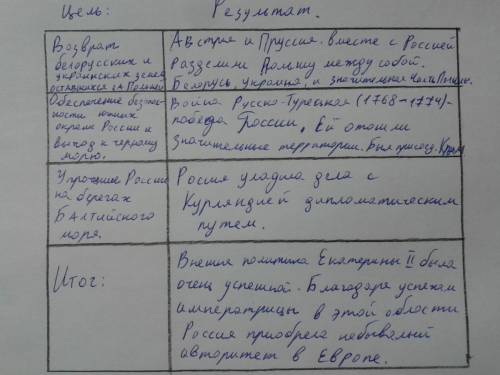 Цель: Результат.
Возврат
белорусских и
украинских земель
оставшихся за Польшей
Австрия и Пруссия вместе с Россией
разделили Польшу между собой.
Беларусь, Украина, и значительная часть Польши.
Обеспечение безопас-
ности южных
окраин России и
выход к Черному
морю.
Война Русско-Турецкая (1768-1774)-
победа России. Ей отошли
значительные территории. Был присоед. Крым
Упрочение России
на берегах
Балтийского
моря.
Росия уладила дела с
Курляндией дипломатическим
путем.
Итог:
Внешняя политика Екатерины II была
очень успешной. Благодаря успехам
императрицы в этой области
Россия приобрела небывалый
авторитет в Европе.